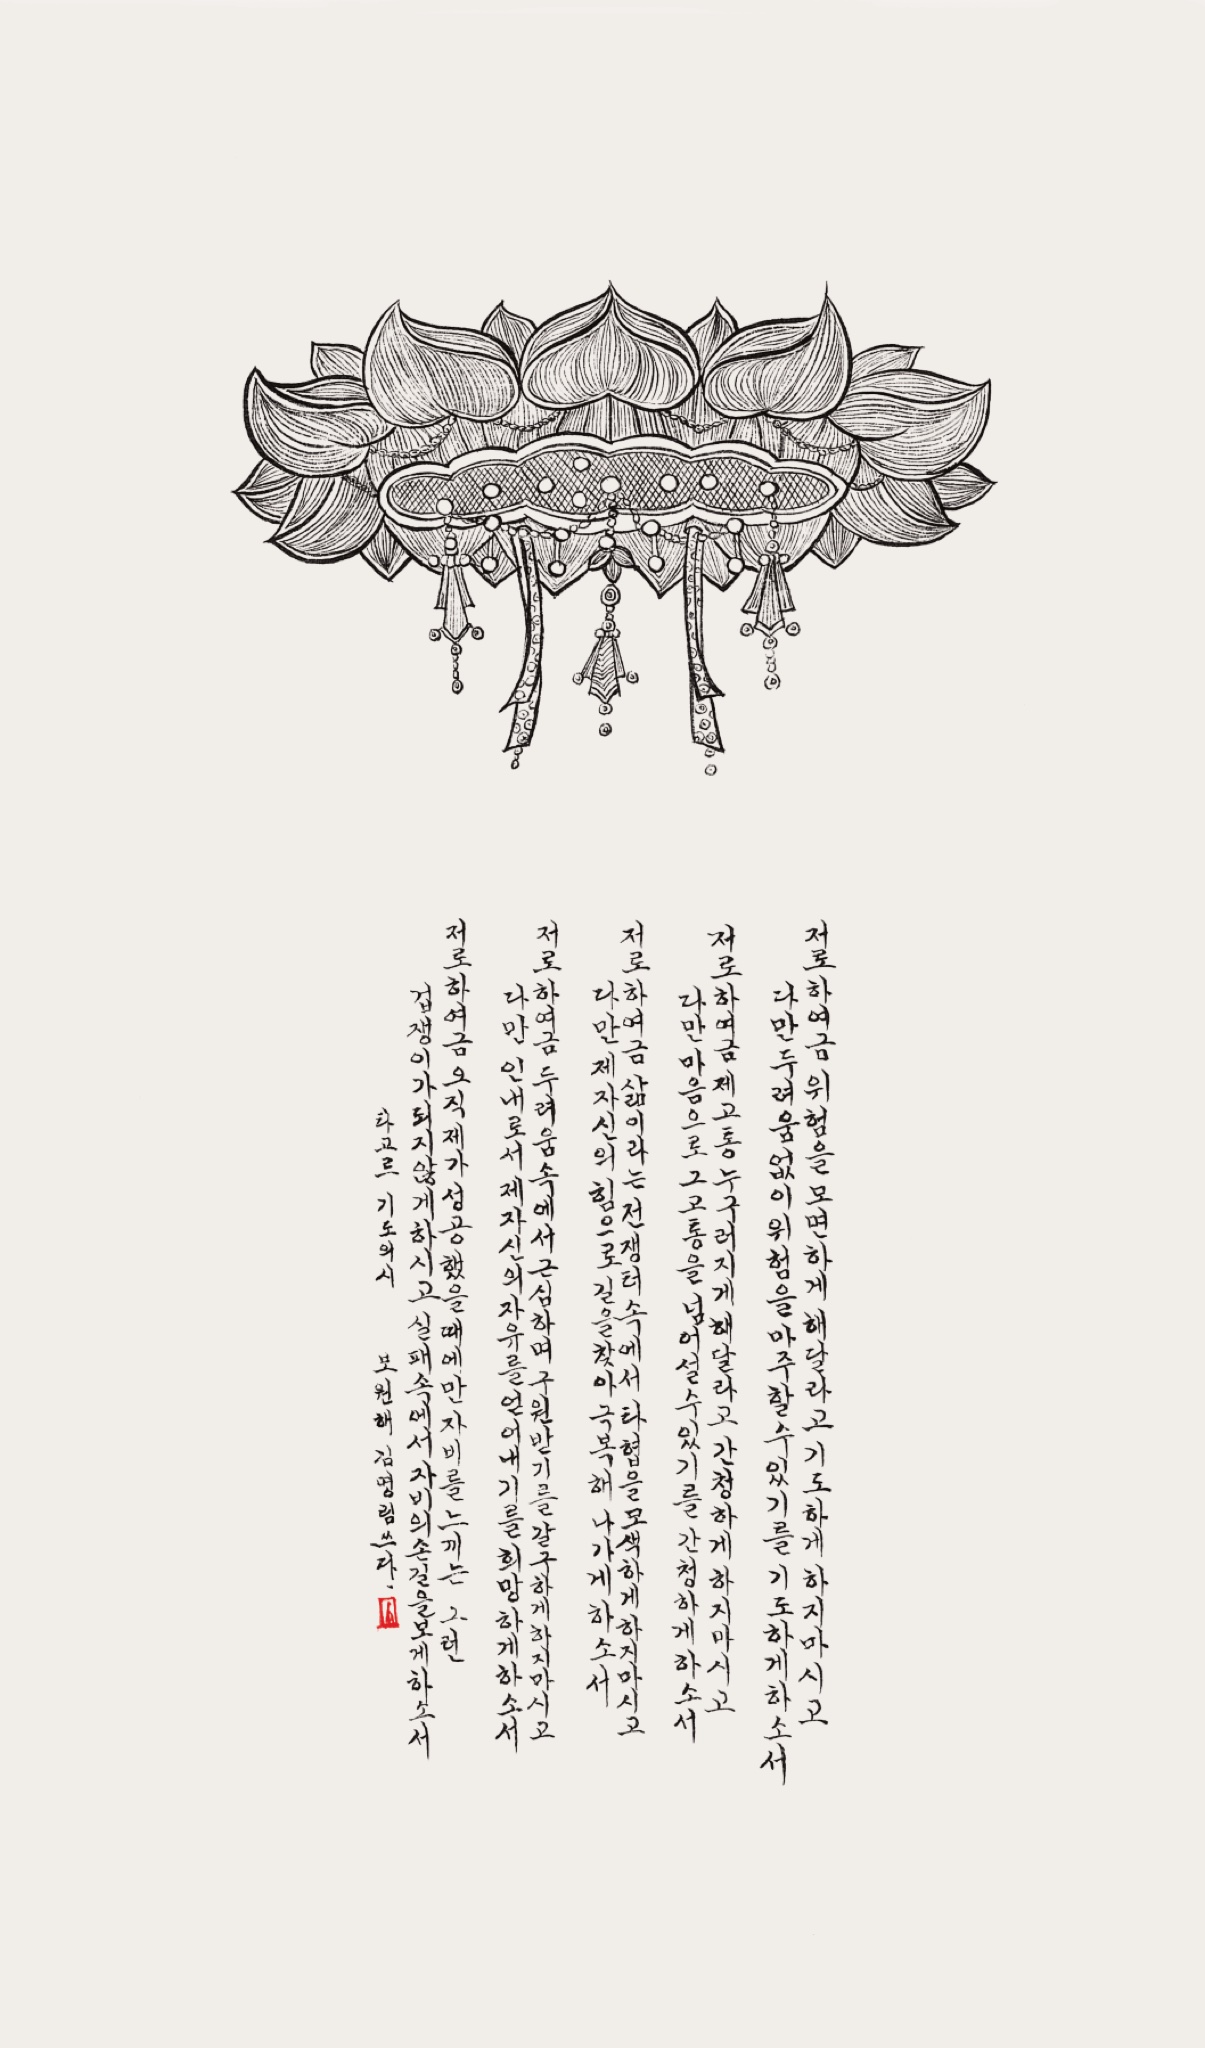 저로하여금 위험을 모면하게 해달라고 기도하게 하지마시고
다만 두려움 없이 위험을 마주할수있기를 기도하게하소서
저로하여금 제고통 누구러지게 해달라고 간청하게 하지마시고
다만 마음으로 그고통을 넘어설수있기를 간청하게하소서
저로 하여금 삶이라는 전쟁터 속에서 타협을 모색하게하지마시고
다만 제자신의 힘으로 길을찾아 극복해 나가게 하소서
저로하여금 두려움속에서 근심하며 구원받기를 갈구하게하지마시고
다만 인내로서 제자신의 자유를 얻어내기를 희망하게하소서
저로하여금 오직 제가 성공했을때에만 자비를 느끼는 그런
겁쟁이가되지않게하시고 실패속에서 자비의손길을보게하소서
타고르 기도의시 보원해 김명림쓰다.